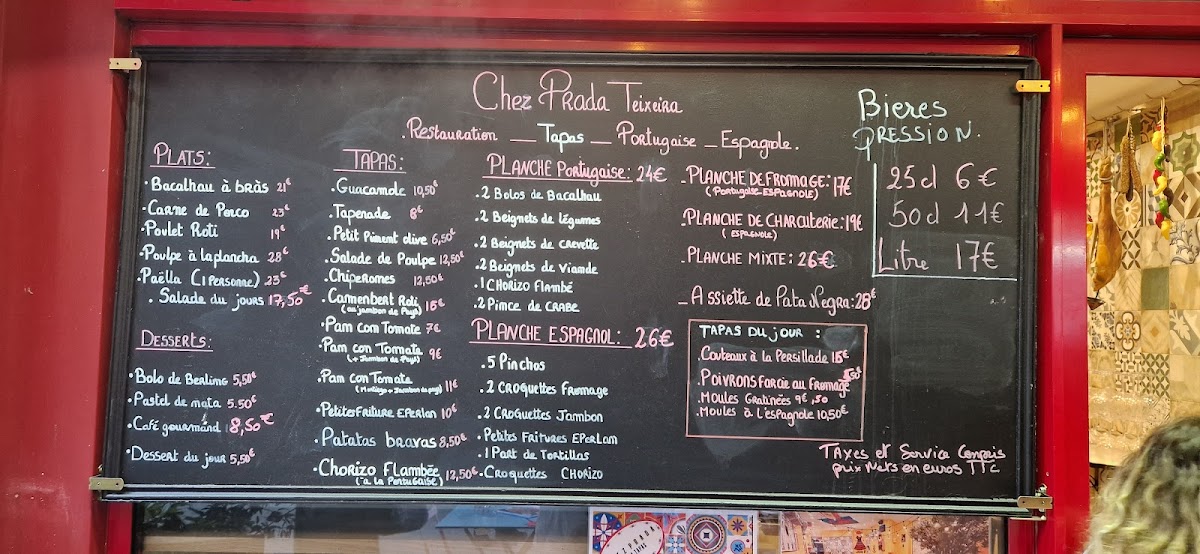 Chez Prada Teixeira
.Restauration _ Tapas _ Portugaise _ Espagnole.
PLATS:
.Bacalhau à bràs 21€
.Carne de Porco 23€
.Poulet Roti 19€
.Poulpe à la plancha 28€
.Paëlla (1 Personne) 23€
.Salade du jours 17,50€
DESSERTS:
.Bolo de Berling 5,50€
.Pastel de nata 5.50€
.Café gourmand 8,50€
.Dessert du jour 5,50€
TAPAS:
.Guacamole 10,50€
.Tapenade 8€
.Petit Piment olive 6,50€
.Salade de Poulpe 12,50€
.Chiperones 12,50€
.Camenbert Roti 16€
(au jambon de Pays)
.Pam con Tomate 7€
.Pam con Tomata 9€
(+ Jambon de Pays)
.Pan con Tomata 11€
.Petites Friture EPerlan 10€
.Patatas bravas 8,50€
.Chorizo Flambée 12,50€
(a la Portugaise)
PLANCHE Portugaise: 24€
.2 Bolos de Bacalhau
.2 Beignets de légumes
.2 Beignets de crevette
.2 Beignets de Viande
.1 CHORIZO Flambé
.2 Pince de CRABE
PLANCHE ESPAGNOL: 26€
.5 Pinchos
.2 CROQUETTES FROMAGE
.2 CROQUETTES JAMBON
.Petites Fritures EPerlan
.1 Part de Tortillas
.Croquettes CHORIZO
.PLANCHE DE FROMAGE: 17€
(PORTUGAISE ESPAGNOLE)
.PLANCHE DE CHARCUTERIE: 19€
(ESPAGNOLE)
.PLANCHE MIXTE: 26€
_Assiette de Pata Negra: 28€
TAPAS DU JOUR :
.Couteaux à la Persillade 15€
.POIVRONS FARCIE AU FROMAGE
.MOULES GRATINÉES 9€,50
.MOULES À L'ESPAGNOLE 10,50€
Bieres
PRESSION.
25 cl 6€
50 cl 11€
Litre 17€
TAXES et Service Compris
prix Nets en euros TTC